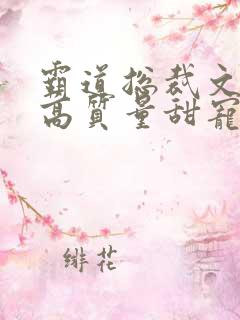 霸道总裁文
高质量甜宠
绯花